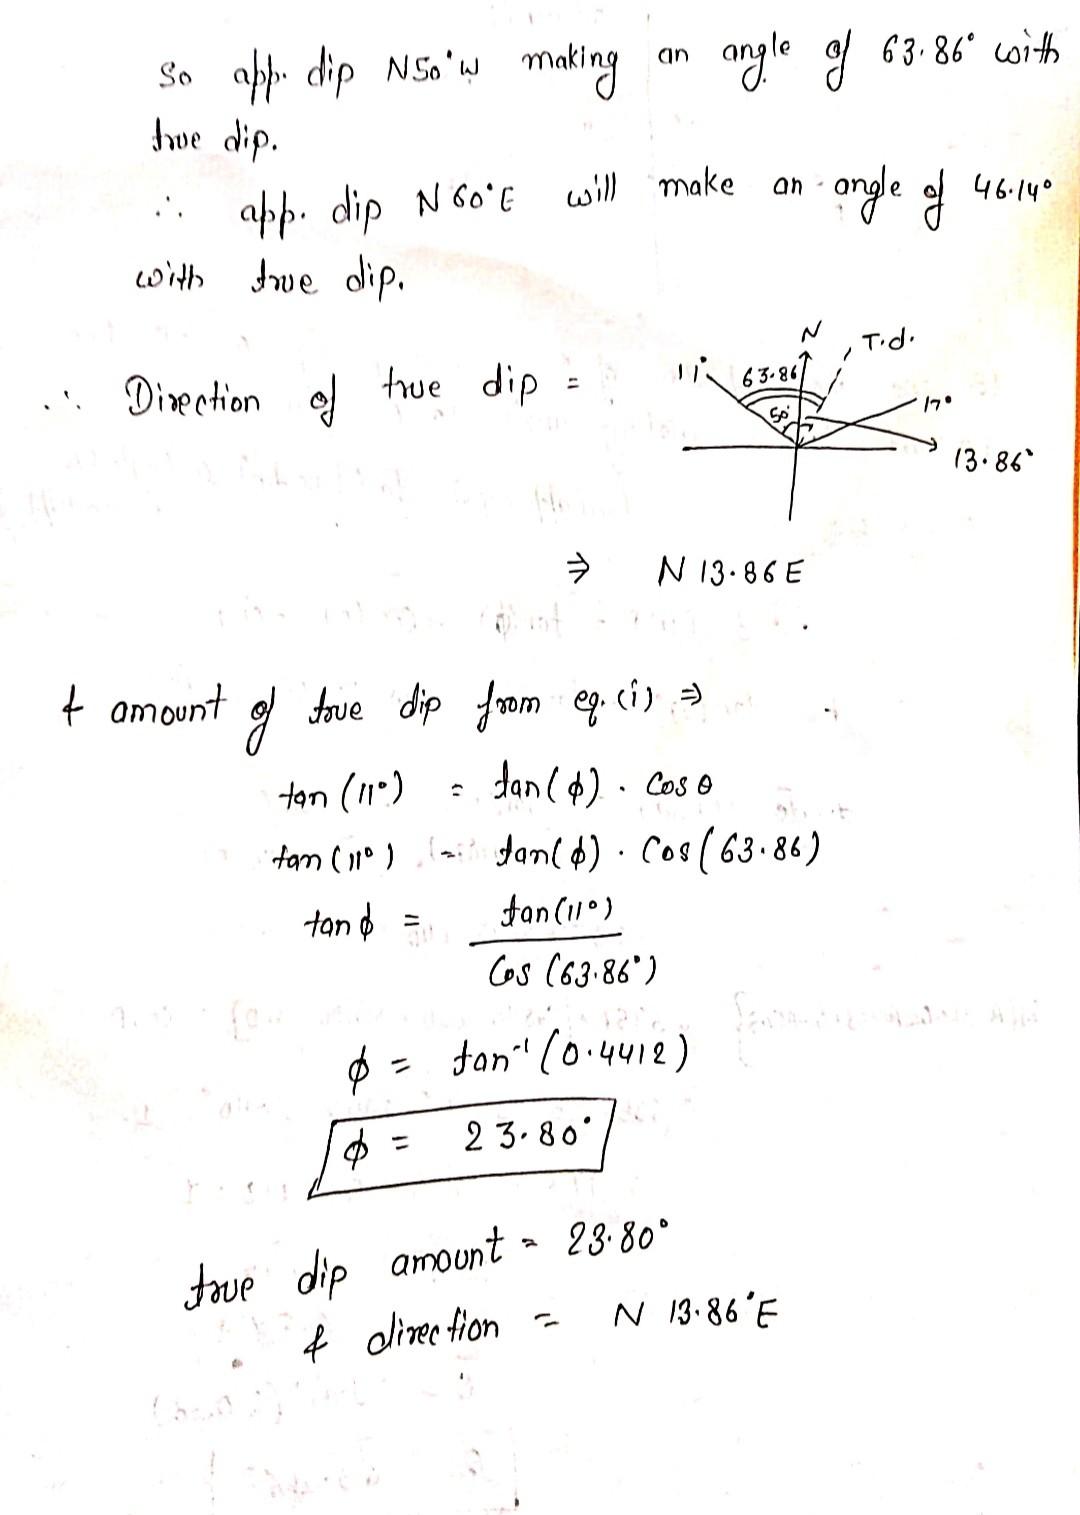 So app. dip N50°W making an angle of 63.86° with
true dip.
∴ app. dip N60°E will make an angle of 46.14°
with true dip.
∴ Direction of true dip =
N
T.d.
11°
63.86
50°
17°
13.86°
⇒ N 13.86 E
& amount of true dip from eq. (i) ⇒
tan (11°) = tan(ϕ) . Cos θ
tan (11°) = tan(ϕ) . Cos(63.86)
tan ϕ = tan(11°)
Cos (63.86°)
ϕ = tan⁻¹ (0.4412)
ϕ = 23.80°
true dip amount = 23.80°
& direction = N 13.86°E